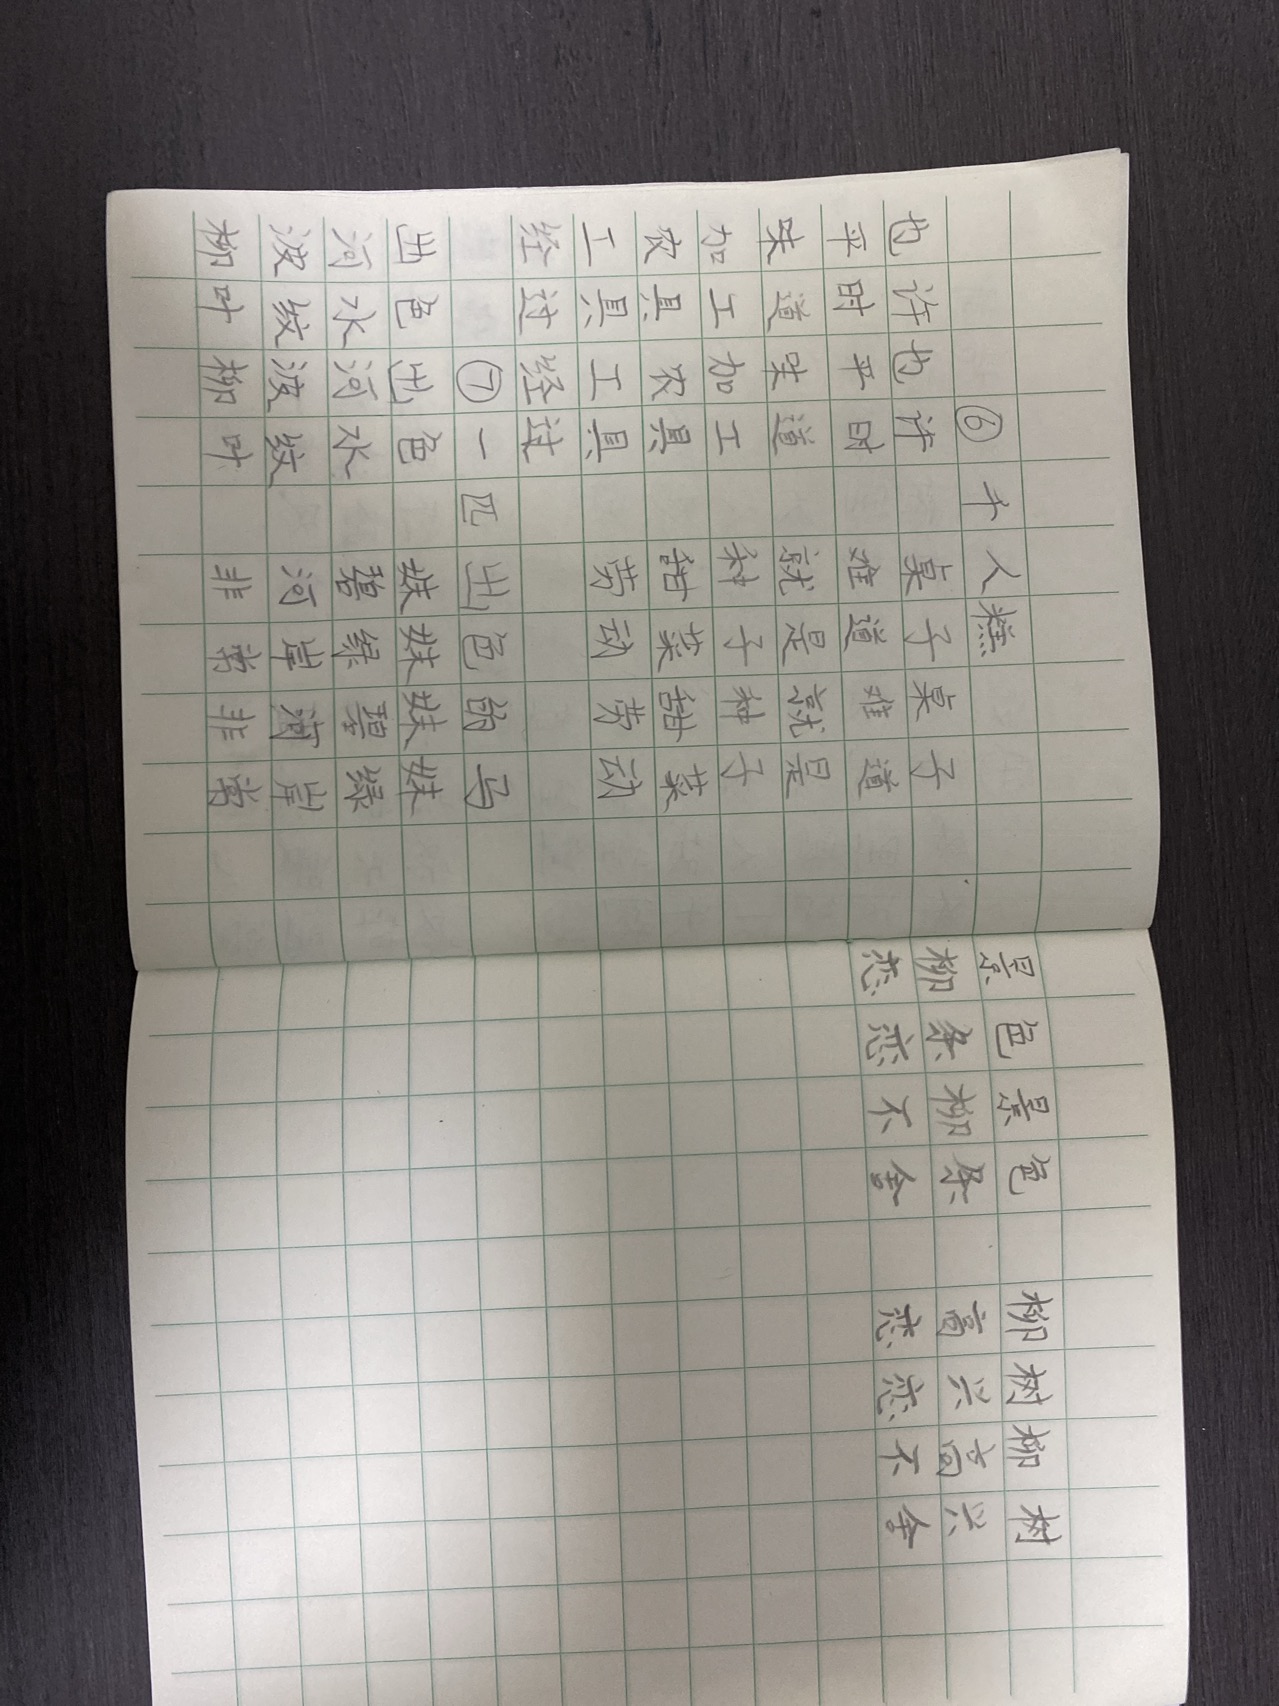 ⑥千人糕
也许也许 桌子桌子
平时平时 难道难道
味道味道 就是就是
加工加工 种子种子
农具农具 甜菜甜菜
工具工具 劳动劳动
经过经过
⑦一匹出色的马
出色出色 妹妹妹妹
河水河水 碧绿碧绿
波纹波纹 河岸河岸
柳叶柳叶 非常非常
景色景色 柳树柳树
柳条柳条 高兴高兴
恋恋不舍 恋恋不舍